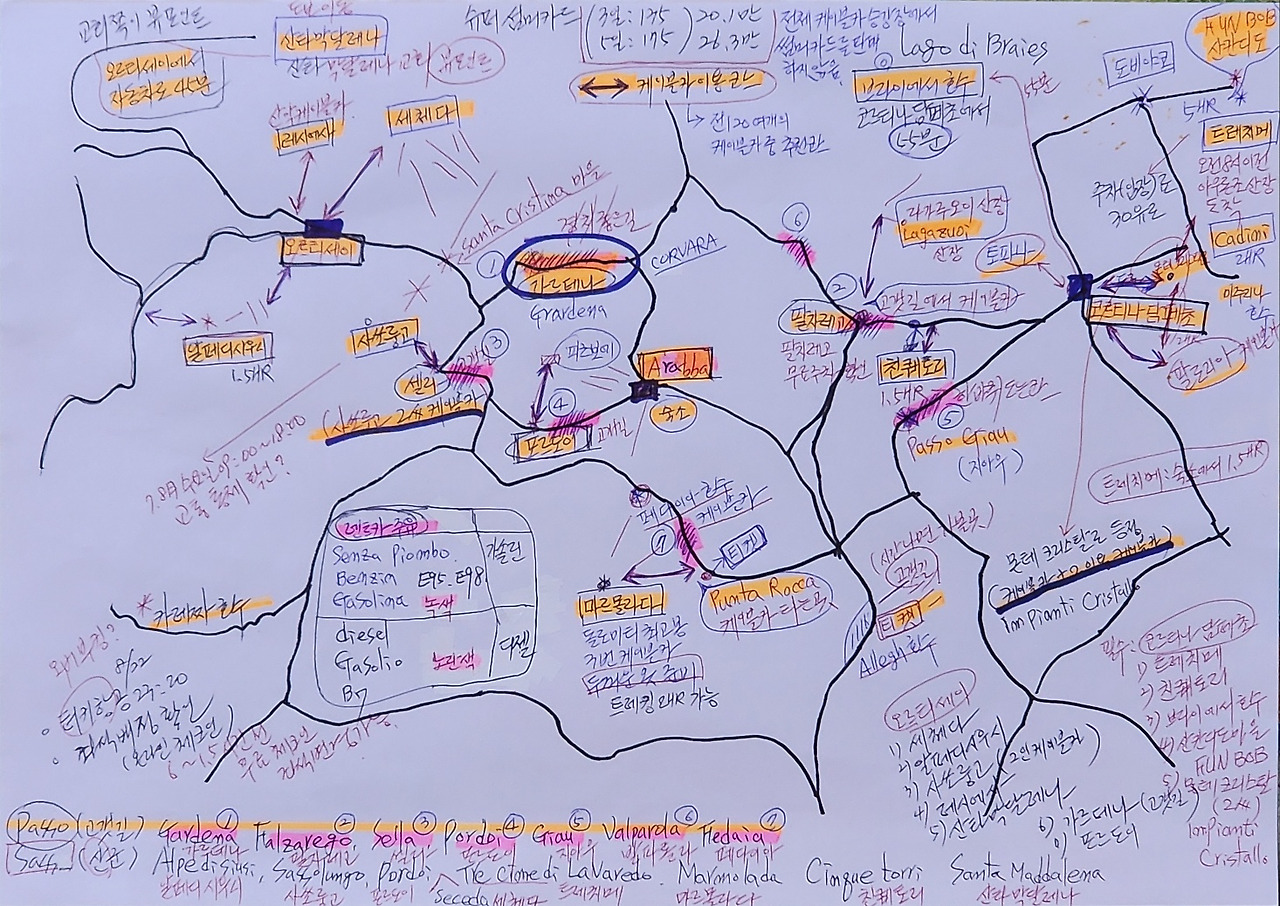 고리쪽이 뷰포인트
오르티세이에서
자동차로 45분
도보 이동
산타 막달레나
산타 막달레나 교회 뷰포인트
슈퍼 썸머카드
3일: 135 20.1만
5일: 175 26.3만
전체 케이블카 승강장에서
썸머카드를 판매
하지 않음
케이블카 이용 코스
전 120 여개의
케이블카 중 추천 코스
Lago di Braies
브라이에서 호수
코르티나 담페초에서
55분
도비아코
FUN BOB
산칸디도
세체다
레시에사
오르티세이
알페디시우시
1.5HR
Santa Cristina 마을
경치 좋은 길
①
가르데나
Grardena
CORVARA
⑥
라가주오이 산장
Lagazuoi
산장
토파나
주차(입장)료
30유로
5HR
트레치메
오전 8시 이전
아우론조 산장
도착
Cadini
2HR
미주리나
호수
사쏘룽고
③
셀라
(사쏘룽고 2인 케이블카)
④
포르도이
고개길
Arabba
숙소
②
팔자레고
고갯길에서 케이블카
팔치레고
친퀘토리
1.5HR
⑤
Passo Giau
(지아우)
코르티나 담페초
트레치메: 숙소에서 1.5HR
7.8月 5日 09:00~18:00
교통 통제 확인?
렌트카 주유
Senza Piombo.
Benzia E95. E98
Gasolina 녹색
가솔린
diesel
Gasolio 노란색
B7
디젤
페다이아 호수
케이블카
⑦
티켓
마르몰라다
돌로미티 최고봉
3번 케이블카
두꺼운 옷 준비
트레킹 2HR 가능
Punta Rocca
케이블카 타는 곳
고갯길
Allegh 호수
몬테 크리스탈로 등정
Im Pianti Cristallo
카레짜 호수
8/22
터키항공 23:20
좌석 배정 확인
(온라인 체크인)
오르티세이
1) 세체다
2) 알페디시우시
3) 사쏘룽고 (2인 케이블카)
4) 레시에사
5) 산타 막달레나
6) 가르데나 (고갯길)
포르도이
필수: 코르티나 담페초
1) 트레치메
2) 친퀘토리
3) 브라이에서 호수
4) 산칸디도 마을
FUN BOB
5) 몬테 크리스탈
Im Pianti
Cristallo
Passo (고개길) Gardena ① Falzarego ② Sella ③ Pordoi ④ Giau ⑤ Valparola ⑥ Fedaia ⑦
가르데나 팔자레고 셀라 포르도이 지아우 발파롤라 페다이아
Sass (산군) Alpe di Siusi, Sassolungo, Pordoi, Tre Cime di Lavaredo. Marmolada Cinque torri Santa Maddalena
알페디시우시 사쏘룽고 포르도이 Seceda 세체다 트레치메 마르몰라다 친퀘토리 산타 막달레나